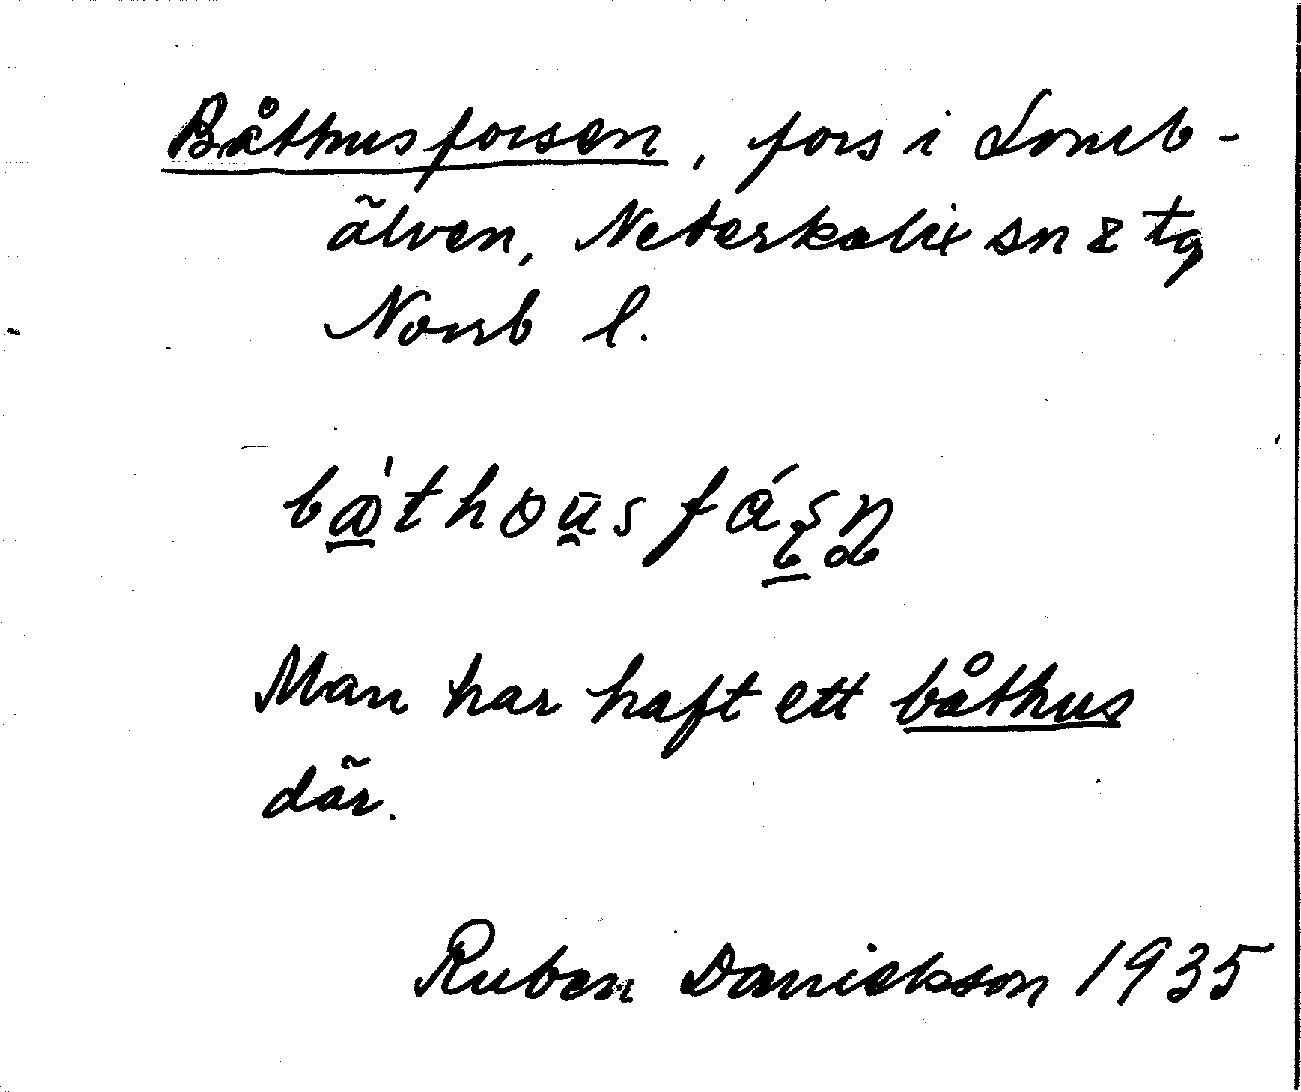 Båthusforsen, fors i Lomb-
älven, Nederkalix sn & tg
Norrb l.
Man har haft ett båthus
där.
Ruben Danielsson 1935